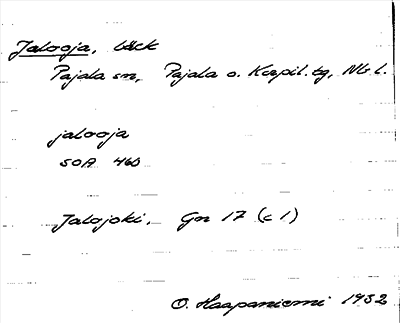 Jalooja, bäck
Pajala sn, Pajala o. Korpil. tg, Nb l.
jalooja
SOA 460
Jalojoki, Gn 17 (c 1)
O. Haapaniemi 1932